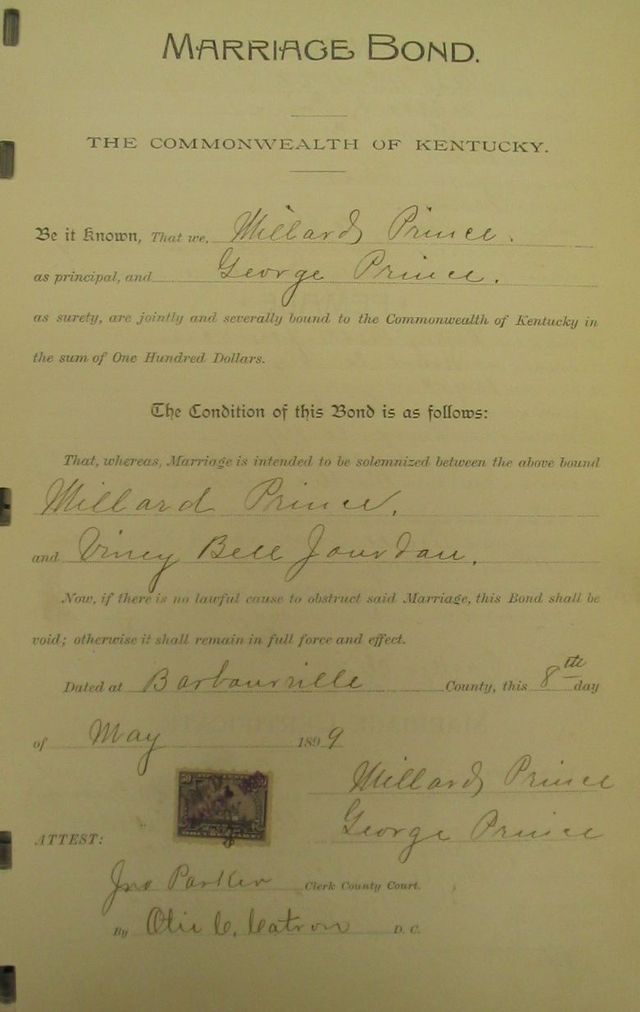 MARRIAGE BOND.
THE COMMONWEALTH OF KENTUCKY.
Be it Known, That we, Millard Prince.
as principal, and George Prince.
as surety, are jointly and severally bound to the Commonwealth of Kentucky in
the sum of One Hundred Dollars.
The Condition of this Bond is as follows:
That, whereas, Marriage is intended to be solemnized between the above bound
Millard Prince.
and Viney Bell Jourdan.
Now, if there is no lawful cause to obstruct said Marriage, this Bond shall be
void; otherwise it shall remain in full force and effect.
Dated at Barbourville County, this 8th day
of May 1899
Millard Prince
George Prince
ATTEST:
Jno Parker Clerk County Court.
By Olie C. Catron D. C.